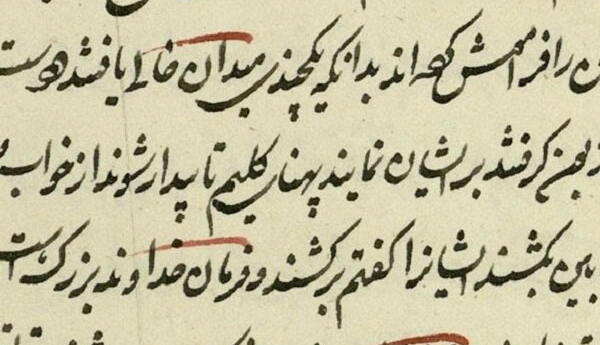 را فرامش کرده اند بدانکه یکچندی میدان خالی یافتند
گرفتند بر ایشان نمایند پهنای گلیم تا بیدار شوند از خواب
بکشند ایشانرا گفتم برکشند و فرمان خداوند بزرگ است